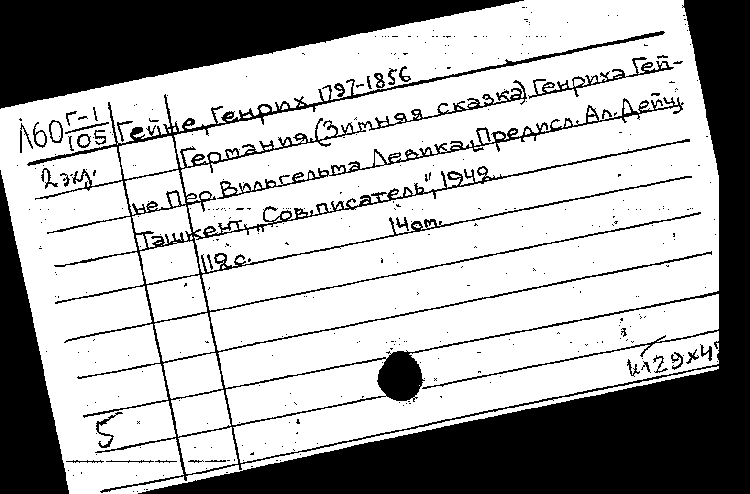 Л60 Г-1/105 Гейне, Генрих, 1797-1856
2 экз. Германия. (Зимняя сказка) Генриха Гей-
не. Пер. Вильгельма Левика. Предисл. Ал. Дейч.
Ташкент, „Сов. писатель", 1942.
112 с. 14 от.
5